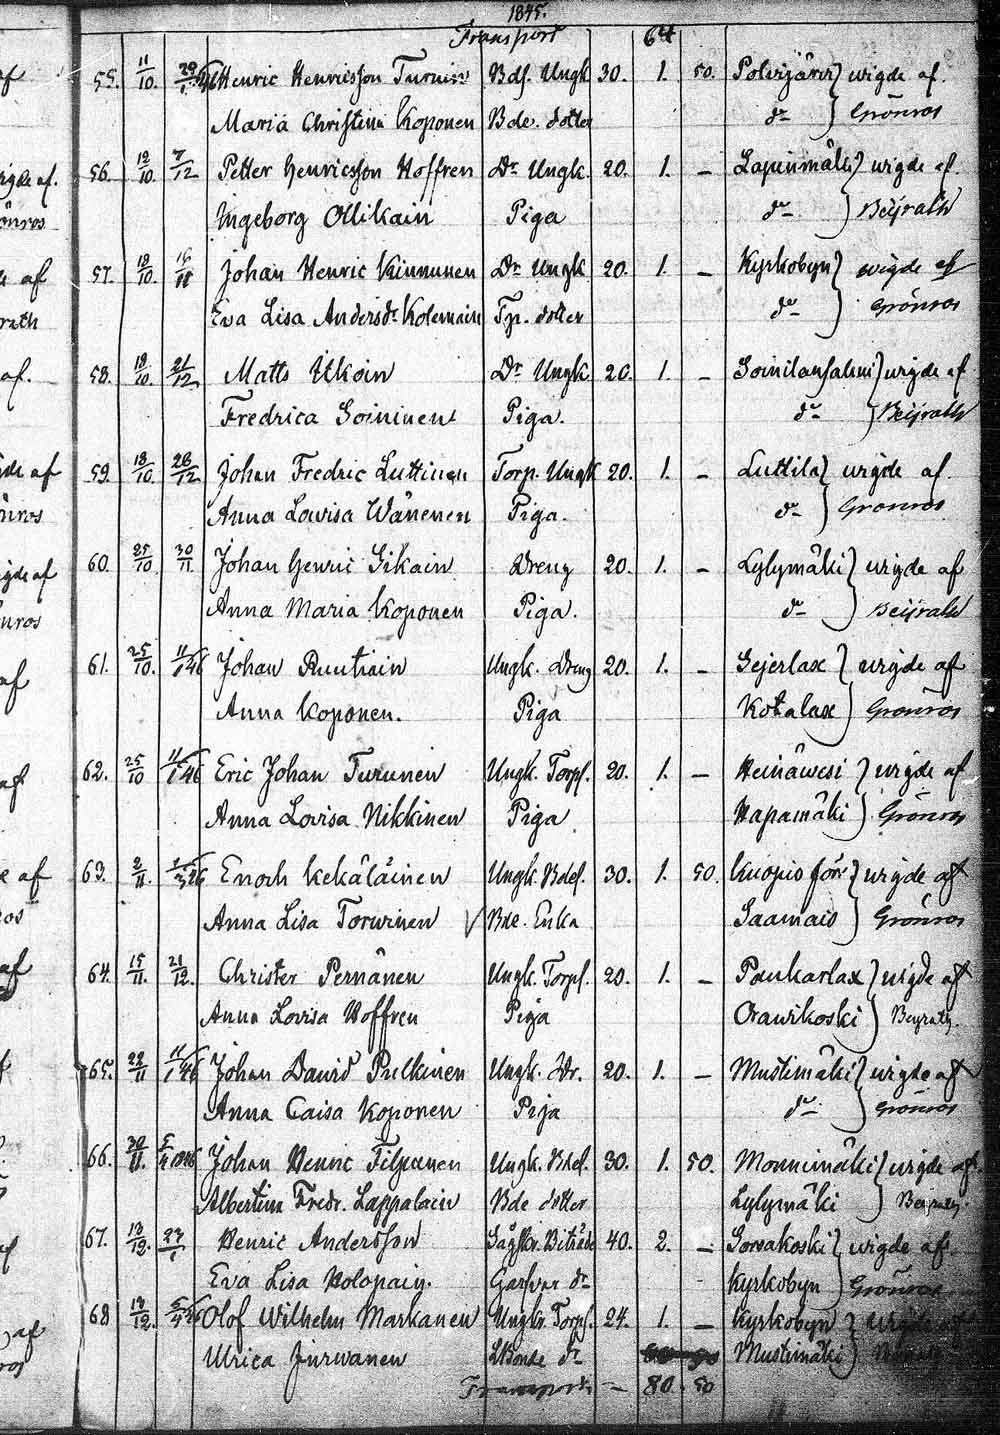 1845.
Transport 64
55. 11/10. 29/1.46 Henric Henricsson Turuin Bds. Ungk 30. 1. 50. Polvijärvi } wigde af.
Maria Christina Koponen Bde. dotter d:o } Grönros
56. 12/10. 7/12 Petter Henricsson Hoffren Dr. Ungk. 20. 1. – Lapinmäki } wigde af.
Ingeborg Ollikain Piga d:o } Beijrath
57. 18/10 16/11 Johan Henric Kinnunen Dr. Ungk 20. 1. – Kyrkobyn } wigde af
Eva Lisa Andersdr Kolemain Tp. dotter d:o } Grönros
58. 18/10. 21/12 Matts Itkoin Dr. Ungk 20. 1. – Soinilansalmi } wigde af
Fredrica Soininen Piga. d:o } Beijrath
59. 18/10. 28/12 Johan Fredric Luttinen Torp. Ungk 20. 1. – Luttila } wigde af.
Anna Lovisa Wänenen Piga. d:o } Grönros
60. 25/10 30/11. Johan Henric Sikain Dreng 20. 1. – Lylymäki } wigde af
Anna Maria Koponen Piga. d:o } Beijrath
61. 25/10. 11/1 46 Johan Ruutiain Ungk. Dreng 20. 1. – Sejerlax } wigde af
Anna Koponen. Piga Kotalax } Grönros
62. 25/10 11/1 46 Eric Johan Turunen Ungk. Torpf. 20. 1. – Heinäwesi } wigde af
Anna Lovisa Nikkinen Piga Hapamäki } Grönros
63. 2/11. Enoch Kekäläinen Ungk. Bdes. 30. 1. 50. Kuopio förs } wigde af
Anna Lisa Torwinen Bde. Enka Saamais } Grönros
64. 15/11. 21/12. Christer Pernänen Ungk. Torpf. 20. 1. – Paukarlax } wigde af
Anna Lovisa Hoffren Piga Orawikoski } Beyrath.
65. 22/11 11/1 46 Johan David Pulkinen Ungk. Dr. 20. 1. – Mustinmäki } wigde af
Anna Caisa Koponen Piga d:o } Grönros
66. 30/11. 5/4 1846 Johan Henric Filpanen Ungk. Bdes. 30. 1. 50. Monnimäki } wigde af.
Albertina Fredr. Lappalain Bde dotter Lylymäki } Beyrath.
67. 13/12. Henric Andersson Sågskr. Biträde 40. 2. – Sorsakoski } wigde af.
Eva Lisa Holopain. Garfvar dr Kyrkobyn } Grönros
68 13/12. Olof Wilhelm Markanen Ungk. Torpf. 24. 1. – Kyrkobyn } wigde af
Ulrica Jurwanen dr Mustimäki }
Transport – 80. 50